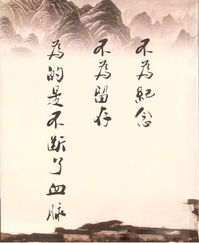 不為紀念
不為留存
為的是不斷了血脉